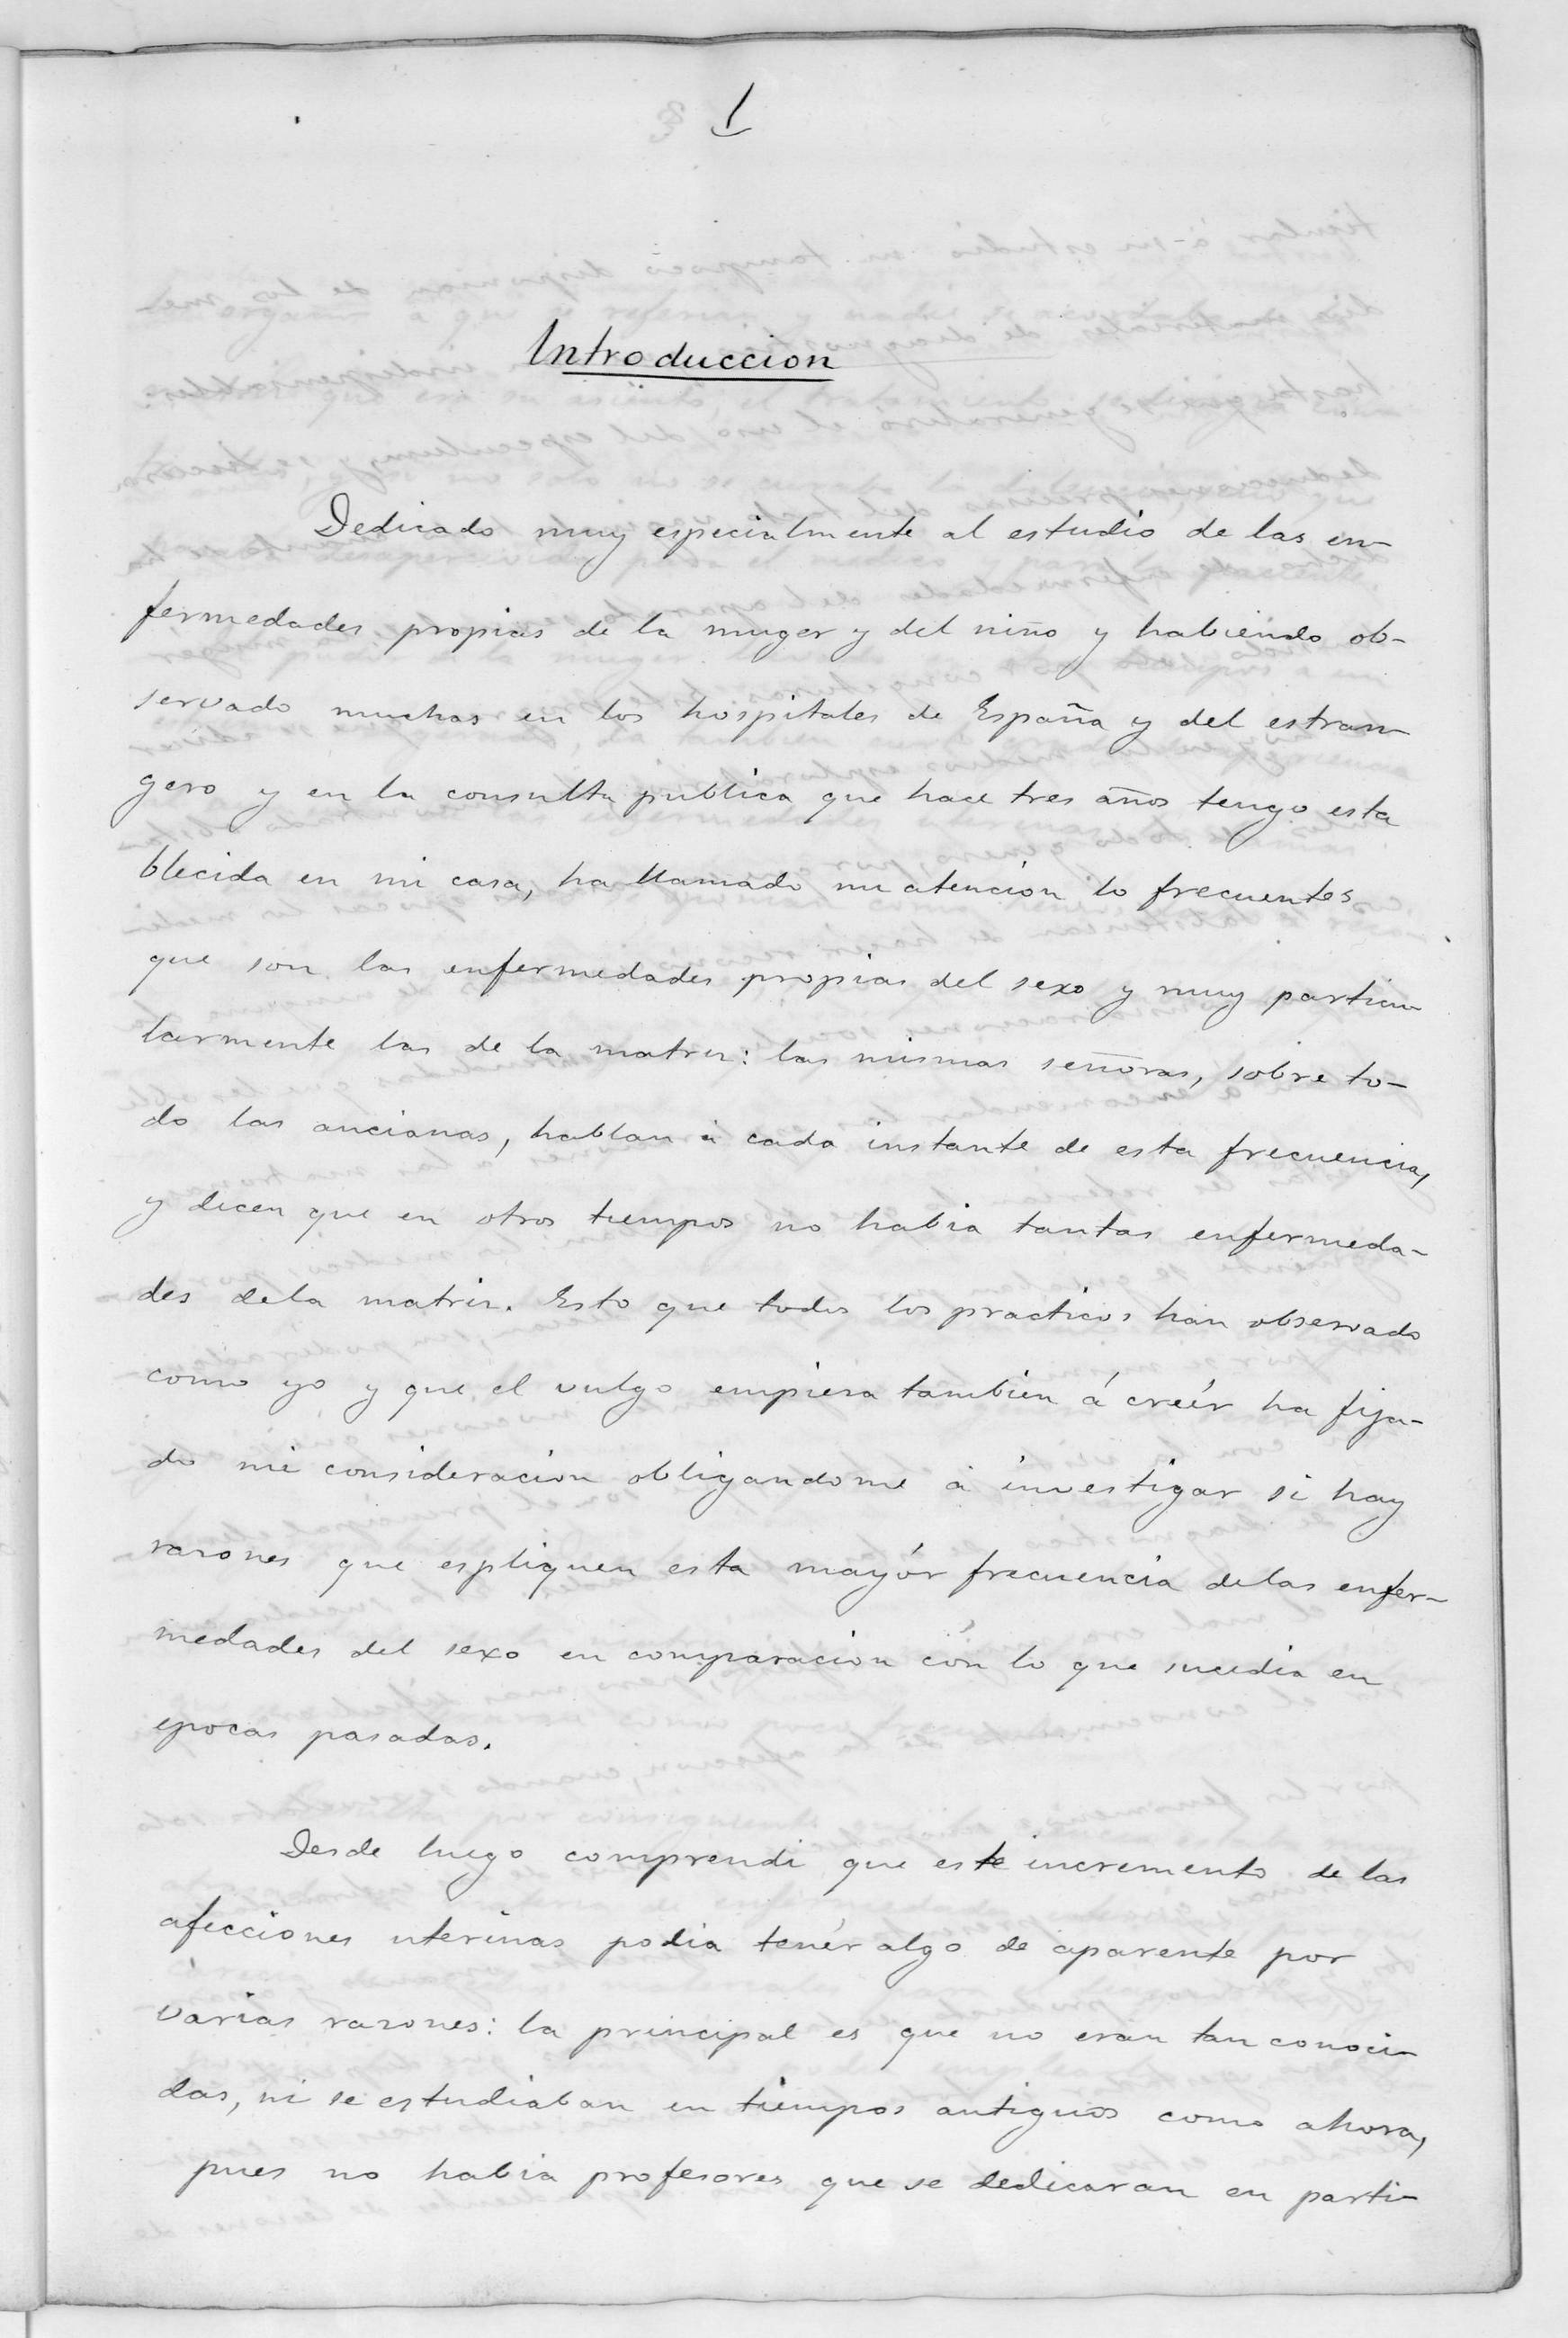 1
Introduccion
Dedicado muy especialmente al estudio de las en-
fermedades propias de la muger y del niño y habiendo ob-
servado muchas en los hospitales de España y del estran-
gero y en la consulta publica que hace tres años tengo esta
blecida en mi casa, ha llamado mi atencion lo frecuentes
que son las enfermedades propias del sexo y muy particu
larmente las de la matriz: las mismas señoras, sobre to-
do las ancianas, hablan á cada instante de esta frecuencia,
y dicen que en otros tiempos no habia tantas enfermeda-
des dela matriz. Esto que todos los practicos han observado
como yo y que el vulgo empieza tambien á creér ha fija-
do mi consideracion obligandome á investigar si hay
razones que espliquen esta mayór frecuencia delas enfer-
medades del sexo en comparacion cón lo que sucedia en
epocas pasadas.
Desde luego comprendi que este incremento de las
afecciones uterinas podia tenér algo de aparente por
varias razones: la principal es que no eran tan conoci-
das, ni se estudiaban en tiempos antiguos como ahora,
pues no habia profesores que se dedicaran en parti-